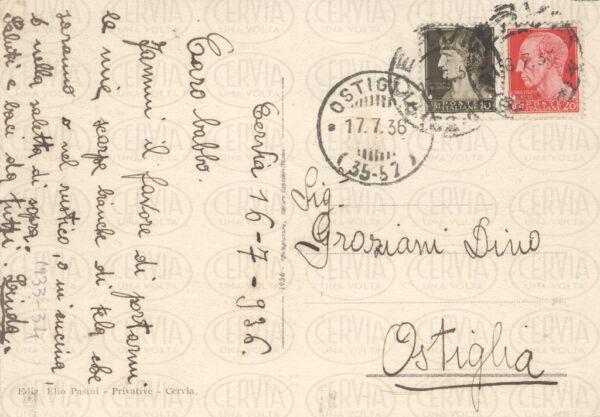 Cervia 16-7-936.
Caro babbo.
Fammi il favore di portarmi
le mie scarpe bianche di tela che
saranno o nel rustico, o in cucina,
o nella saletta di sopra.
Saluti e baci da tutti.
1933-34
Ediz. Elio Pasini - Privative - Cervia.
OSTIGLIA
17.7.36
(35-57)
POSTE
ITALIANE 10
POSTE
ITALIANE 20
Sig.
Graziani Dino
Ostiglia
CERVIA
UNA VOLTA